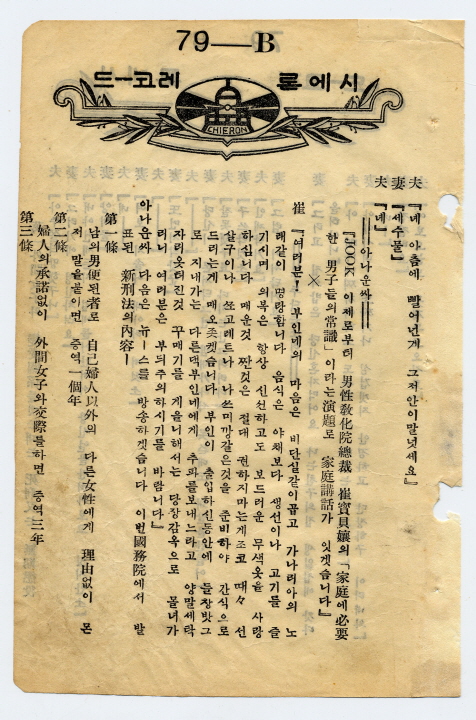 79—B
시에론 레코—드
CHIERON
夫 『네 아츰에 빨어넌게 그저안이말넛세요』
妻 『세수물』
夫 『네』
══아나운싸══
『JOOK 이제로부터 男性敎化院總裁 崔寶貝孃의 「家庭에必要
한 男子들의常識」이라는演題로 家庭講話가 잇겟습니다』
×
崔 『여러분! 부인네의 마음은 비단실같이곱고 가나리아의 노
래같이 명랑합니다 음식은 야채보다 생선이나 고기를 즐
기시며 의복은 항상 신선하고도 보드러운 무색옷을 사랑
하십니다 매운것 짠것은 절대 권하지마는게조코 때々 선
살구이나 쪼고레트나 나쓰미깡같은것을 준비하야 간식으로
드리는게 매오좃켓습니다 부인이 출입하신동안에 들창밧그
로 지내가는 다른댁부인네에게 추파를보내느라고 양말세탁
자리옷터진것 꾸매기를 게을니해서는 당장감옥으로 몰녀가
리니 여러분은 부듸주의하시기를 바람니다』
아나운싸 다음은 뉴—스를 방송하겟슴니다 이번國務院에서 발
표된 新刑法의內容—
第一條
남의男便된者로 自己婦人以外의 다른女性에게 理由없이 몬
저 말을붙이면 증역一個年
第二條
婦人의承諾없이 外間女子와交際를하면 증역三年
第三條